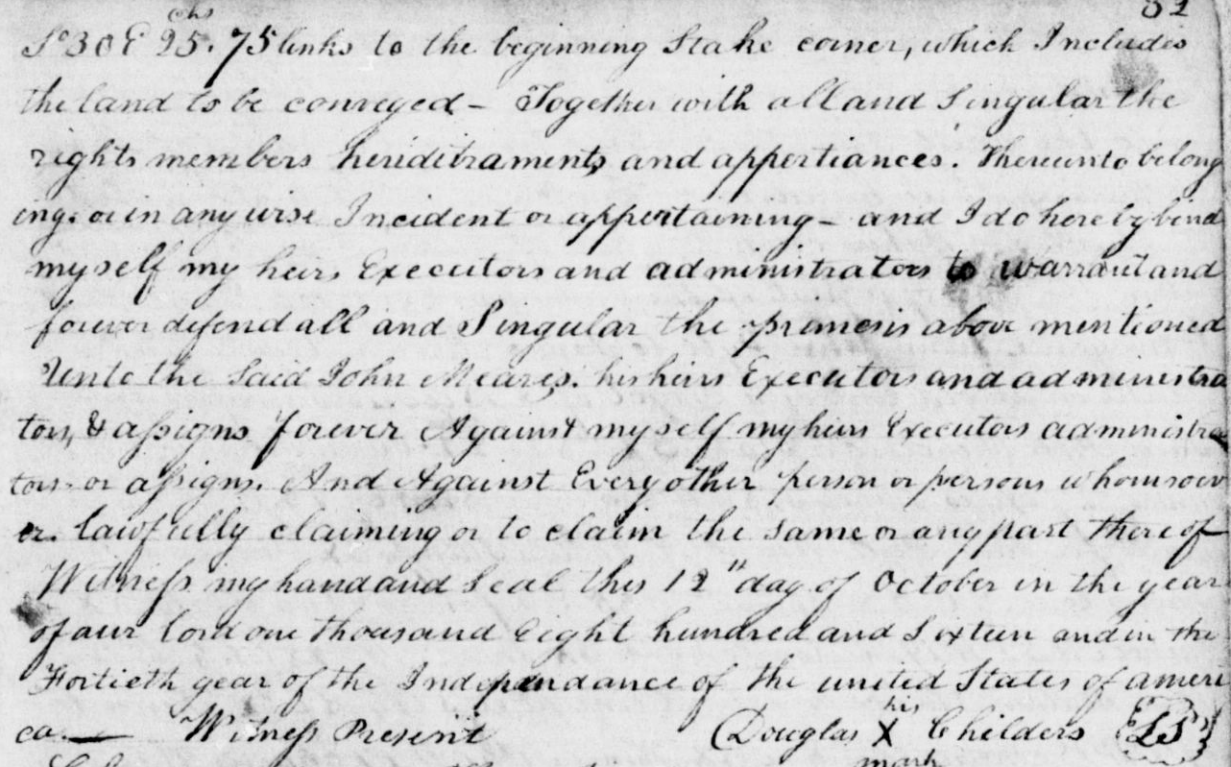 chs
So 30 E 25. 75 links to the beginning Stake corner, which Includes
the land to be conveyed - Together with all and Singular the
rights members heriditraments and appertiances. Thereunto belong
ing. or in any wise Incident or appertaining - and I do hereby bind
myself my heirs Executors and administrators to warrant and
forever defend all and Singular the primesis above mentioned
Unto the Said John Meares. his heirs Executors and administra
tors, & assigns forever Against myself my heirs Executors administra
tors or assigns. And Against Every other person or persons whomsoev
er. lawfully claiming or to claim the same or any part there of
Witness my hand and Seal this 12th day of October in the year
of our lord one thousand Eight hundred and Sixteen and in the
Fortieth year of the Independance of the united States of ameri
ca. — Witness Present
his
Douglas X Childers LS
mark